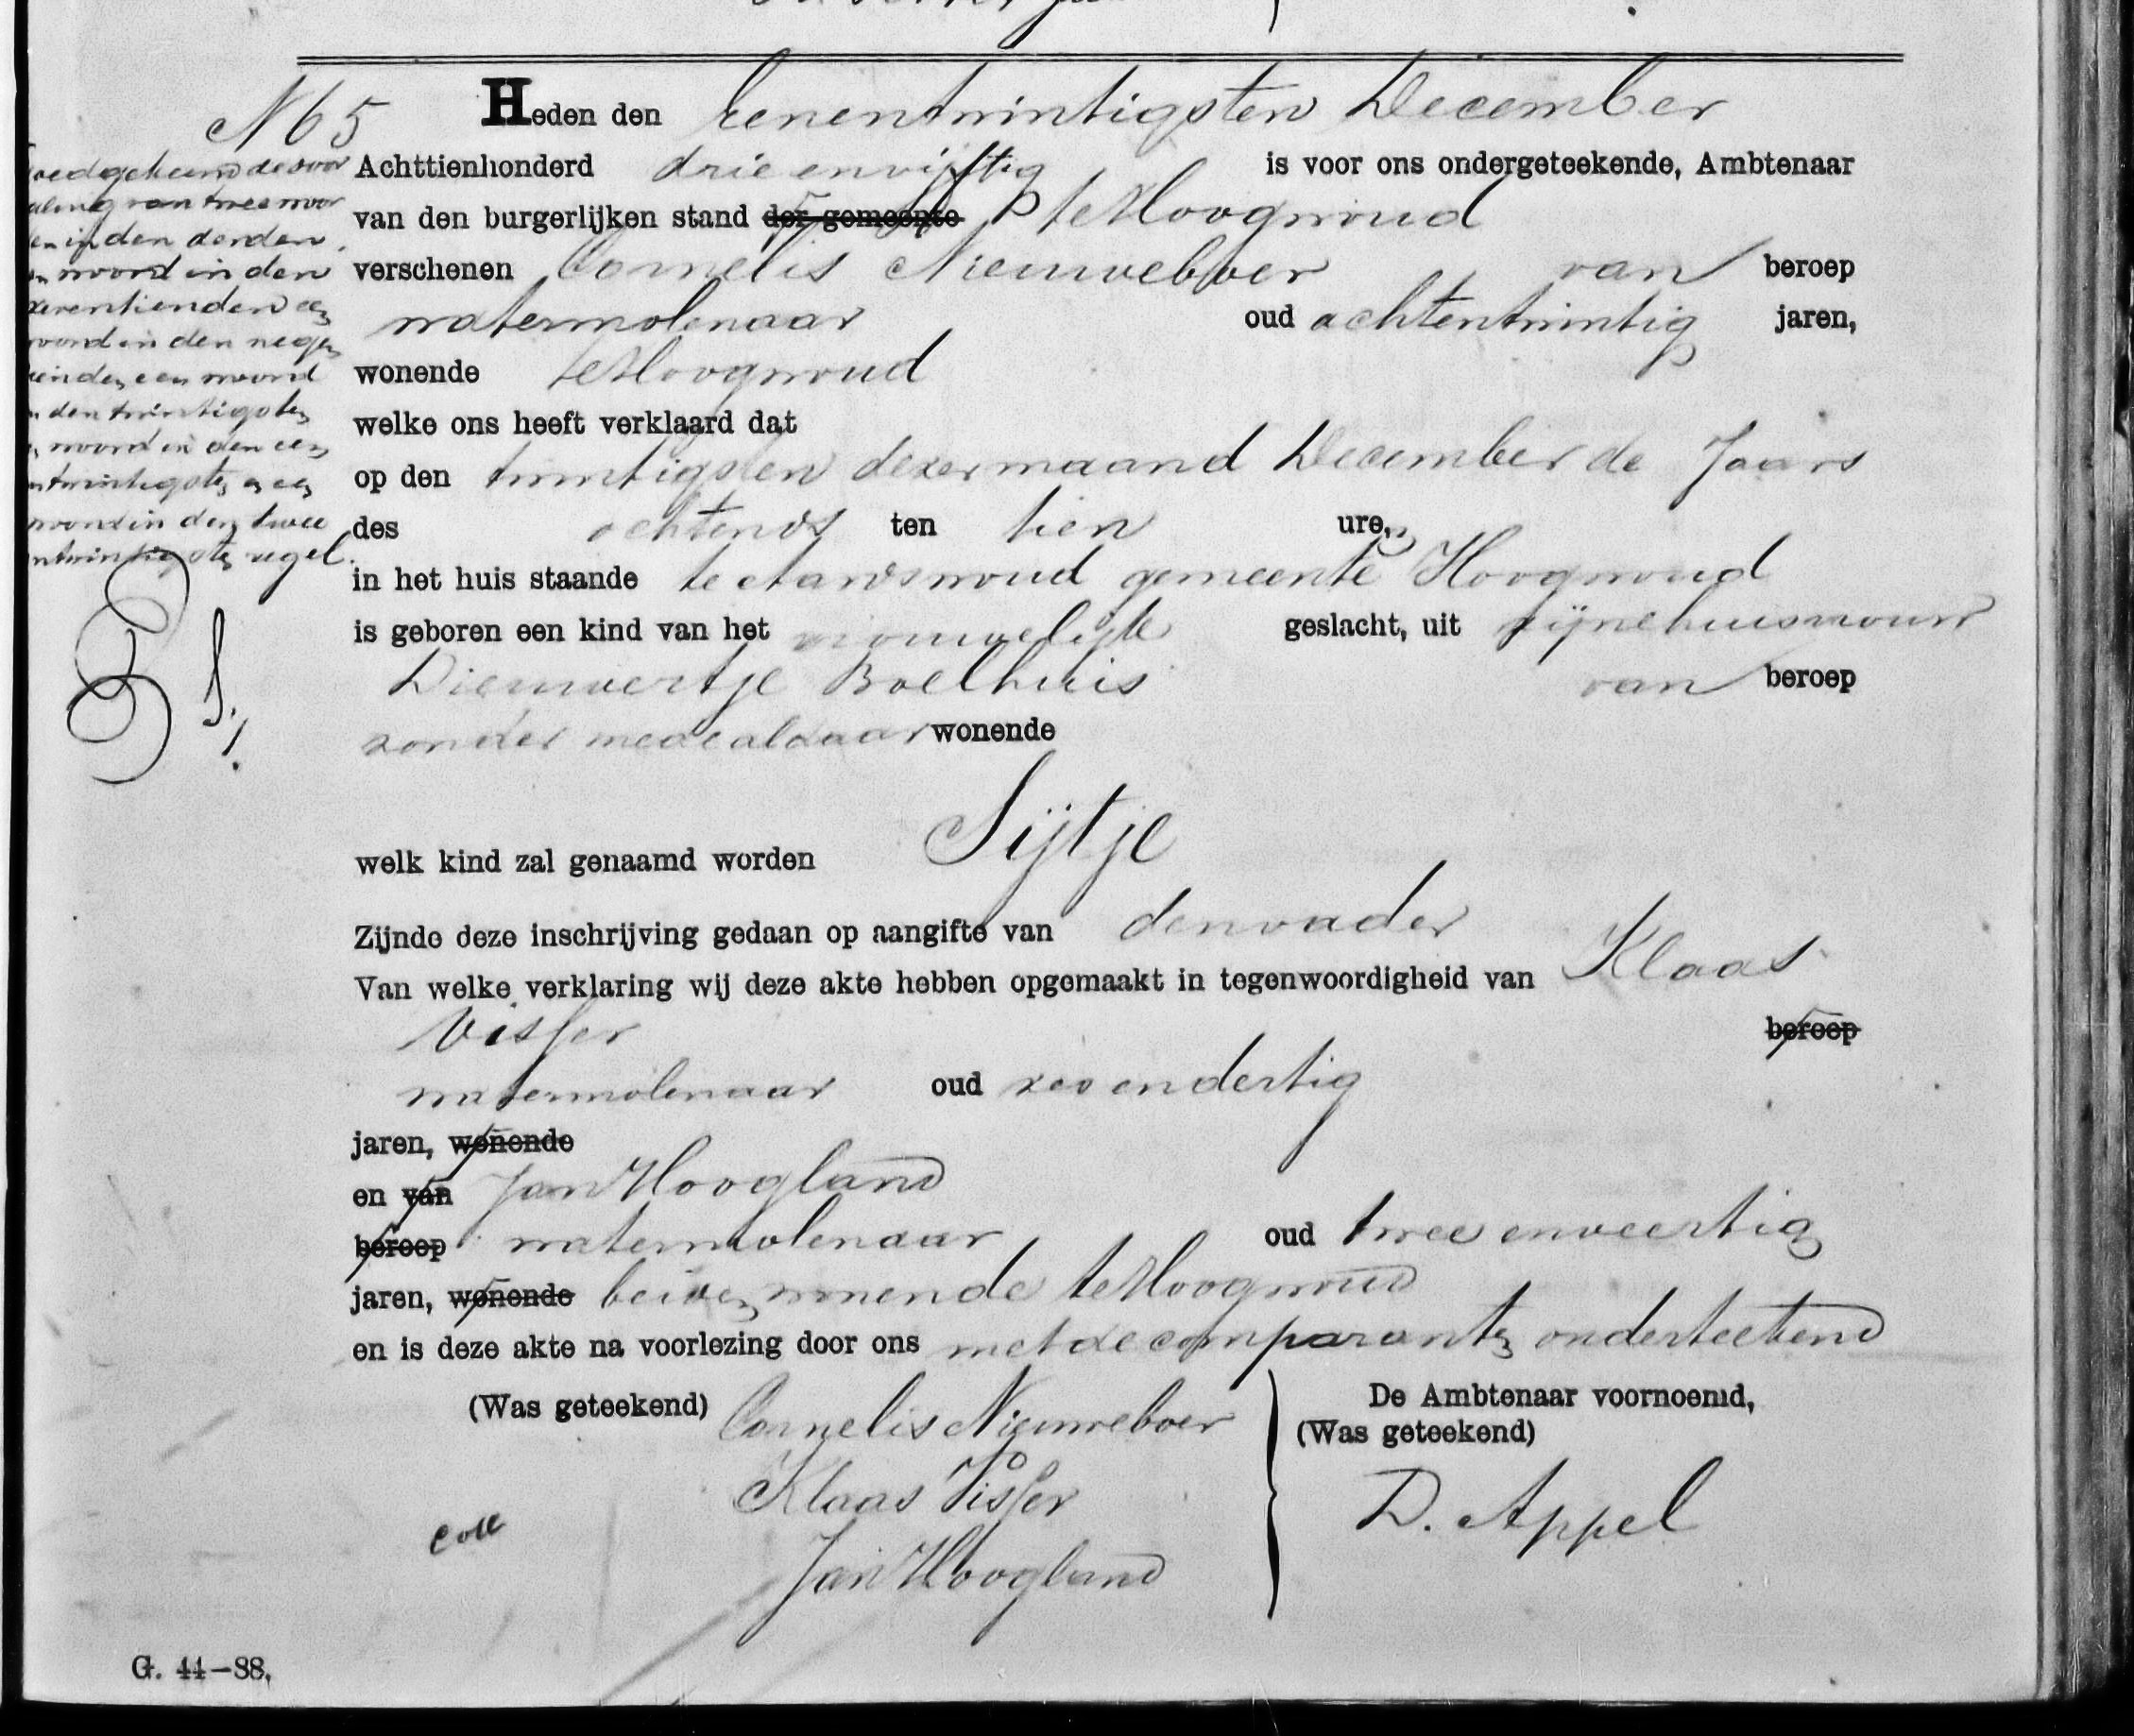 N 65
Heden den eenentwintigsten December
Achttienhonderd drie en vijftig is voor ons ondergeteekende, Ambtenaar
van den burgerlijken stand der gemeente te Hoogwoud
verschenen Cornelis Nieuweboer van beroep
watermolenaar oud achtentwintig jaren,
wonende te Hoogwoud
welke ons heeft verklaard dat
op den twintigsten dezer maand December de Jaars
des ochtends ten tien ure,
in het huis staande te Aartswoud gemeente Hoogwoud
is geboren een kind van het vrouwelijk geslacht, uit zijne huisvrouw
Dieuwertje Boelhuis van beroep
zonder mede aldaar wonende
welk kind zal genaamd worden Sijtje
Zijnde deze inschrijving gedaan op aangifte van den vader
Van welke verklaring wij deze akte hebben opgemaakt in tegenwoordigheid van Klaas
Visser beroep
watermolenaar oud zes en dertig
jaren, wonende
en van Jan Hoogland
beroep watermolenaar oud twee en veertig
jaren, wonende beiden wonende te Hoogwoud
en is deze akte na voorlezing door ons met de comparanten onderteekend
(Was geteekend) Cornelis Nieuweboer
Klaas Visser
Jan Hoogland
De Ambtenaar voornoemd,
(Was geteekend)
D. Appel
goedgekeurd de door
haling van twee woor
den in den derden
een woord in den
zeventienden een
woord in den negen
tienden een woord
in den twintigsten
een woord in den een
entwintigsten en een
woord in den twee
entwintigsten regel.
coll
G. 44–88,